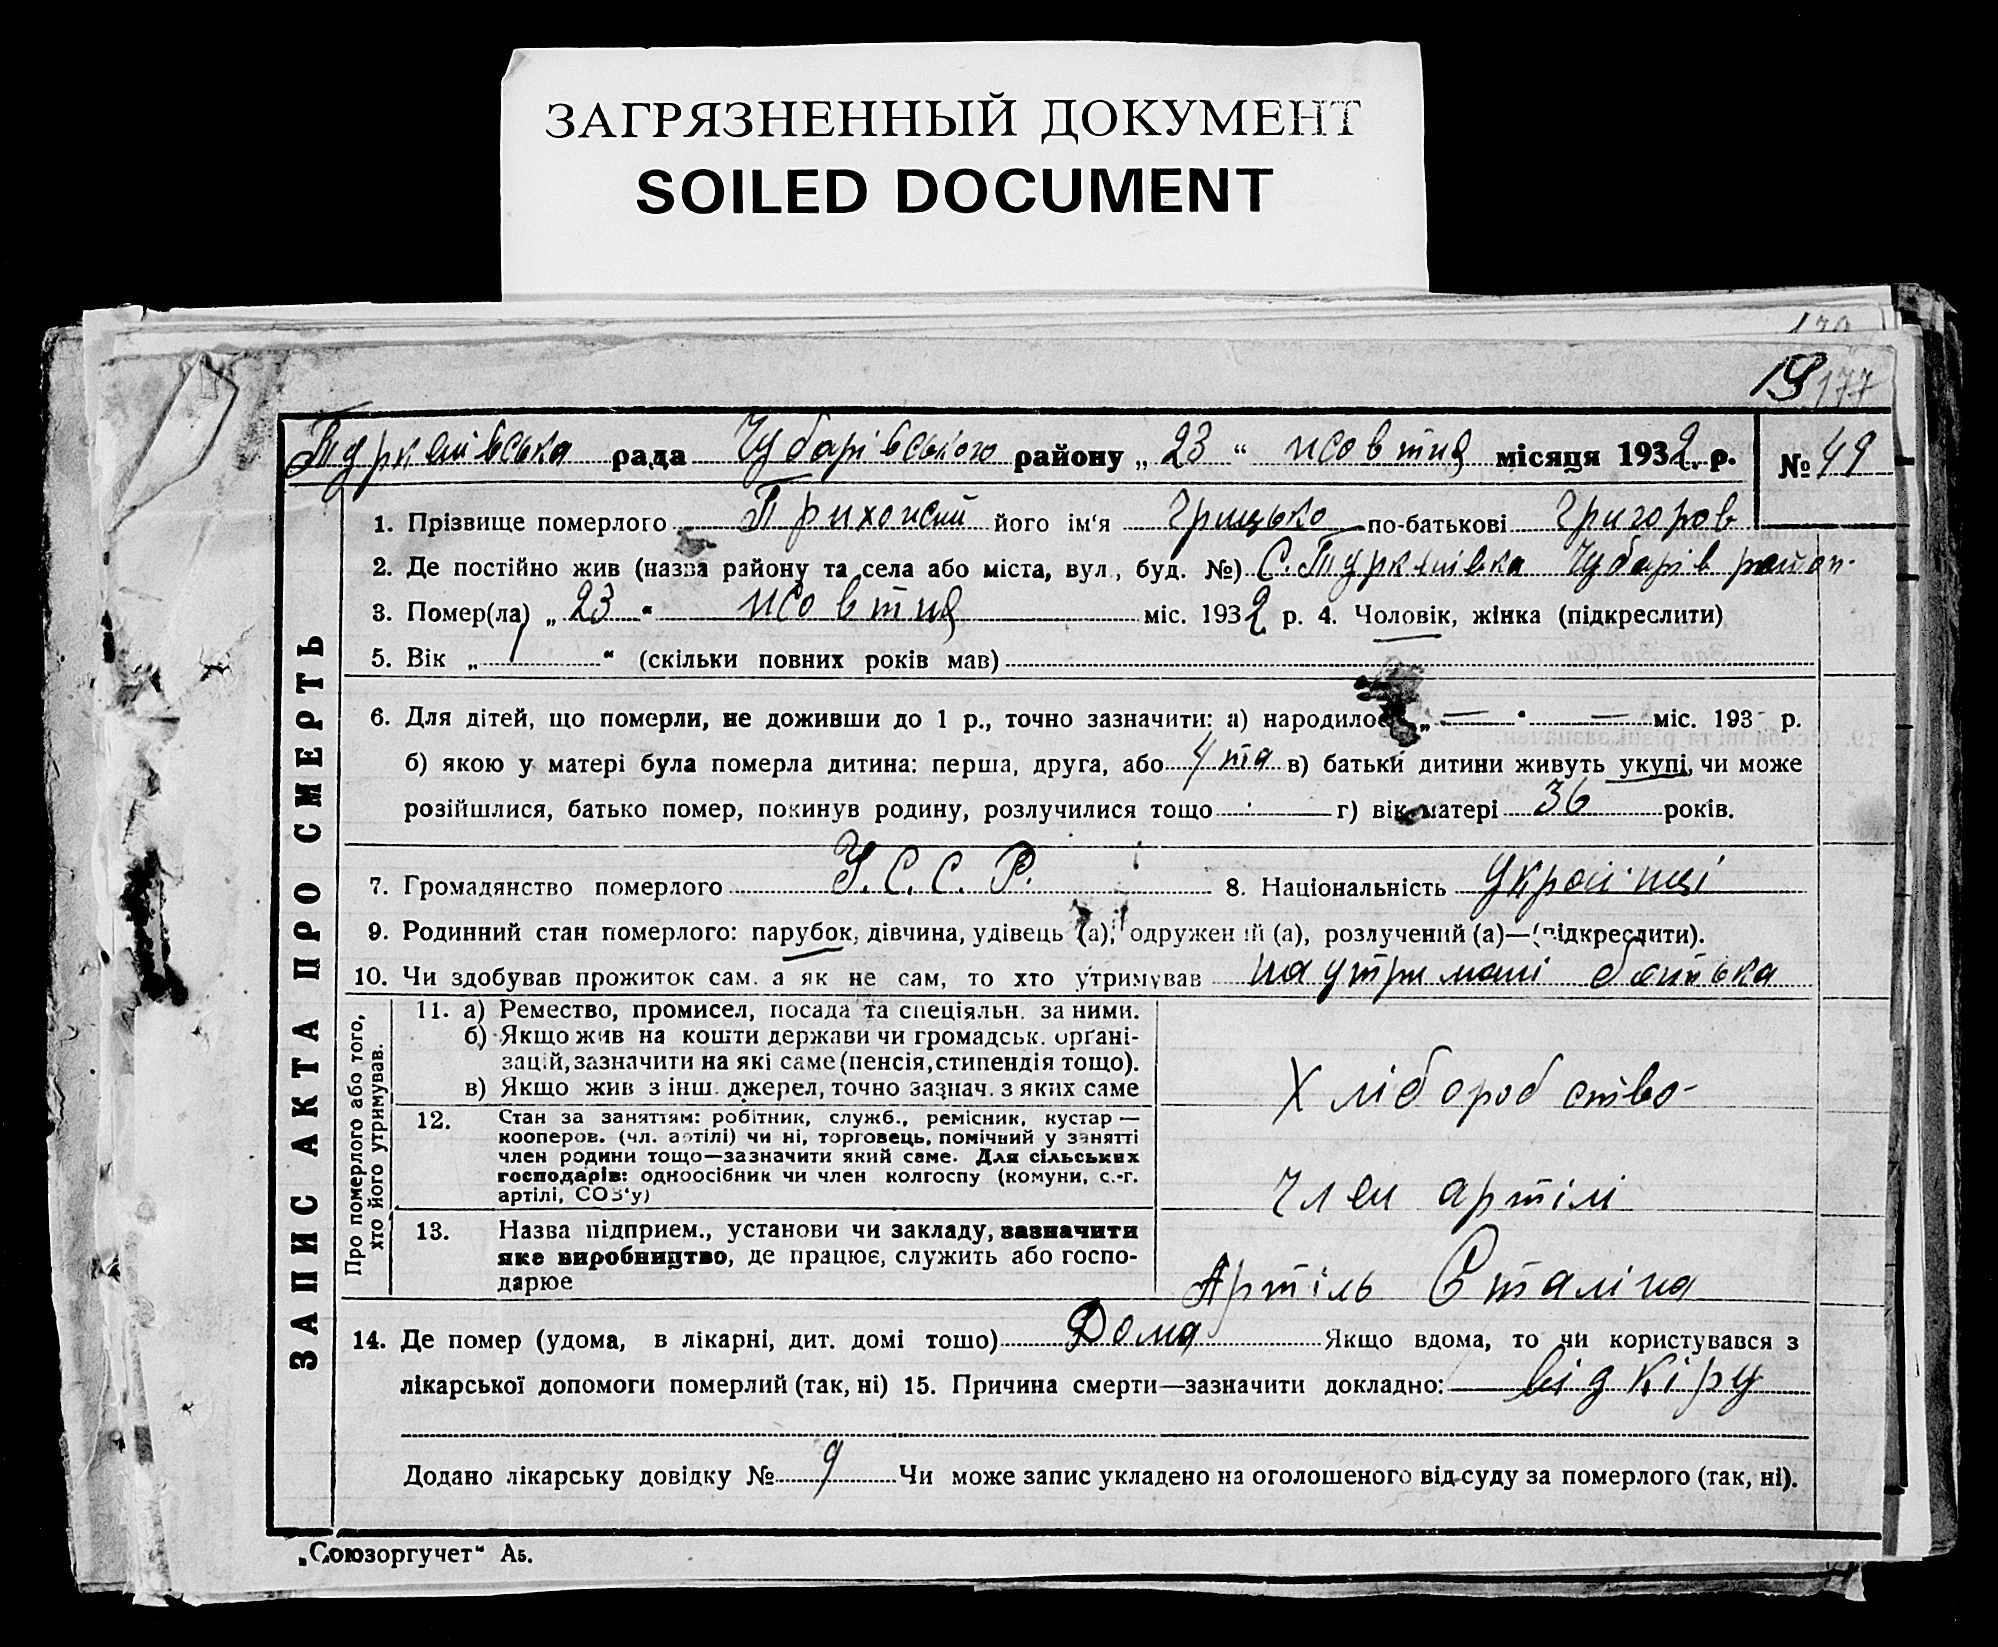 ЗАГРЯЗНЕННЫЙ ДОКУМЕНТ
SOILED DOCUMENT
19 177
Туркенівська рада Чубарівського району „ 23 “ жовтня місяця 1932 р. № 49
1. Прізвище померлого його ім‘я Грицько по-батькові Григоров
2. Де постійно жив (назва району та села або міста, вул., буд. №) С. Туркенівка Чубарів район.
3. Помер(ла) „ 23 “ жовтня міс. 1932 р. 4. Чоловік, жінка (підкреслити)
5. Вік „ 1 “ (скільки повних років мав)
6. Для дітей, що померли, не доживши до 1 р., точно зазначити: а) народилося „ — “ — міс. 193 р.
б) якою у матері була померла дитина: перша, друга, або 4 та в) батьки дитини живуть укупі, чи може
розійшлися, батько помер, покинув родину, розлучилися тощо — г) вік матері 36 років.
7. Громадянство померлого У.С.С.Р. 8. Національність Україньці
9. Родинний стан померлого: парубок, дівчина, удівець (а), одружений (а), розлучений (а)—(підкреслити).
10. Чи здобував прожиток сам. а як не сам, то хто утримував на утримані батька
11. а) Ремество, промисел, посада та спеціяльн. за ними.
б) Якщо жив на кошти держави чи громадськ. органі-
зацій, зазначити на які саме (пенсія, стипендія тощо).
в) Якщо жив з інш. джерел, точно зазнач. з яких саме
Хліборобство
12. Стан за заняттям: робітник, служб., ремісник, кустар —
кооперов. (чл. артілі) чи ні, торговець, помічний у занятті
член родини тощо—зазначити який саме. Для сільських
господарів: одноосібник чи член колгоспу (комуни, с.-г.
артілі, СОЗ‘у)
Член артілі
13. Назва підприєм., установи чи закладу, зазначити
яке виробництво, де працює, служить або госпо-
дарює
Артіль Сталіна
14. Де помер (удома, в лікарні, дит. домі тощо) Дома Якщо вдома, то чи користувався з
лікарської допомоги померлий (так, ні) 15. Причина смерти—зазначити докладно: від кіру
Додано лікарську довідку № 9 Чи може запис укладено на оголошеного від суду за померлого (так, ні).
ЗАПИС АКТА ПРО СМЕРТЬ
Про померлого або того,
хто його утримував.
„Союзоргучет“ А5.